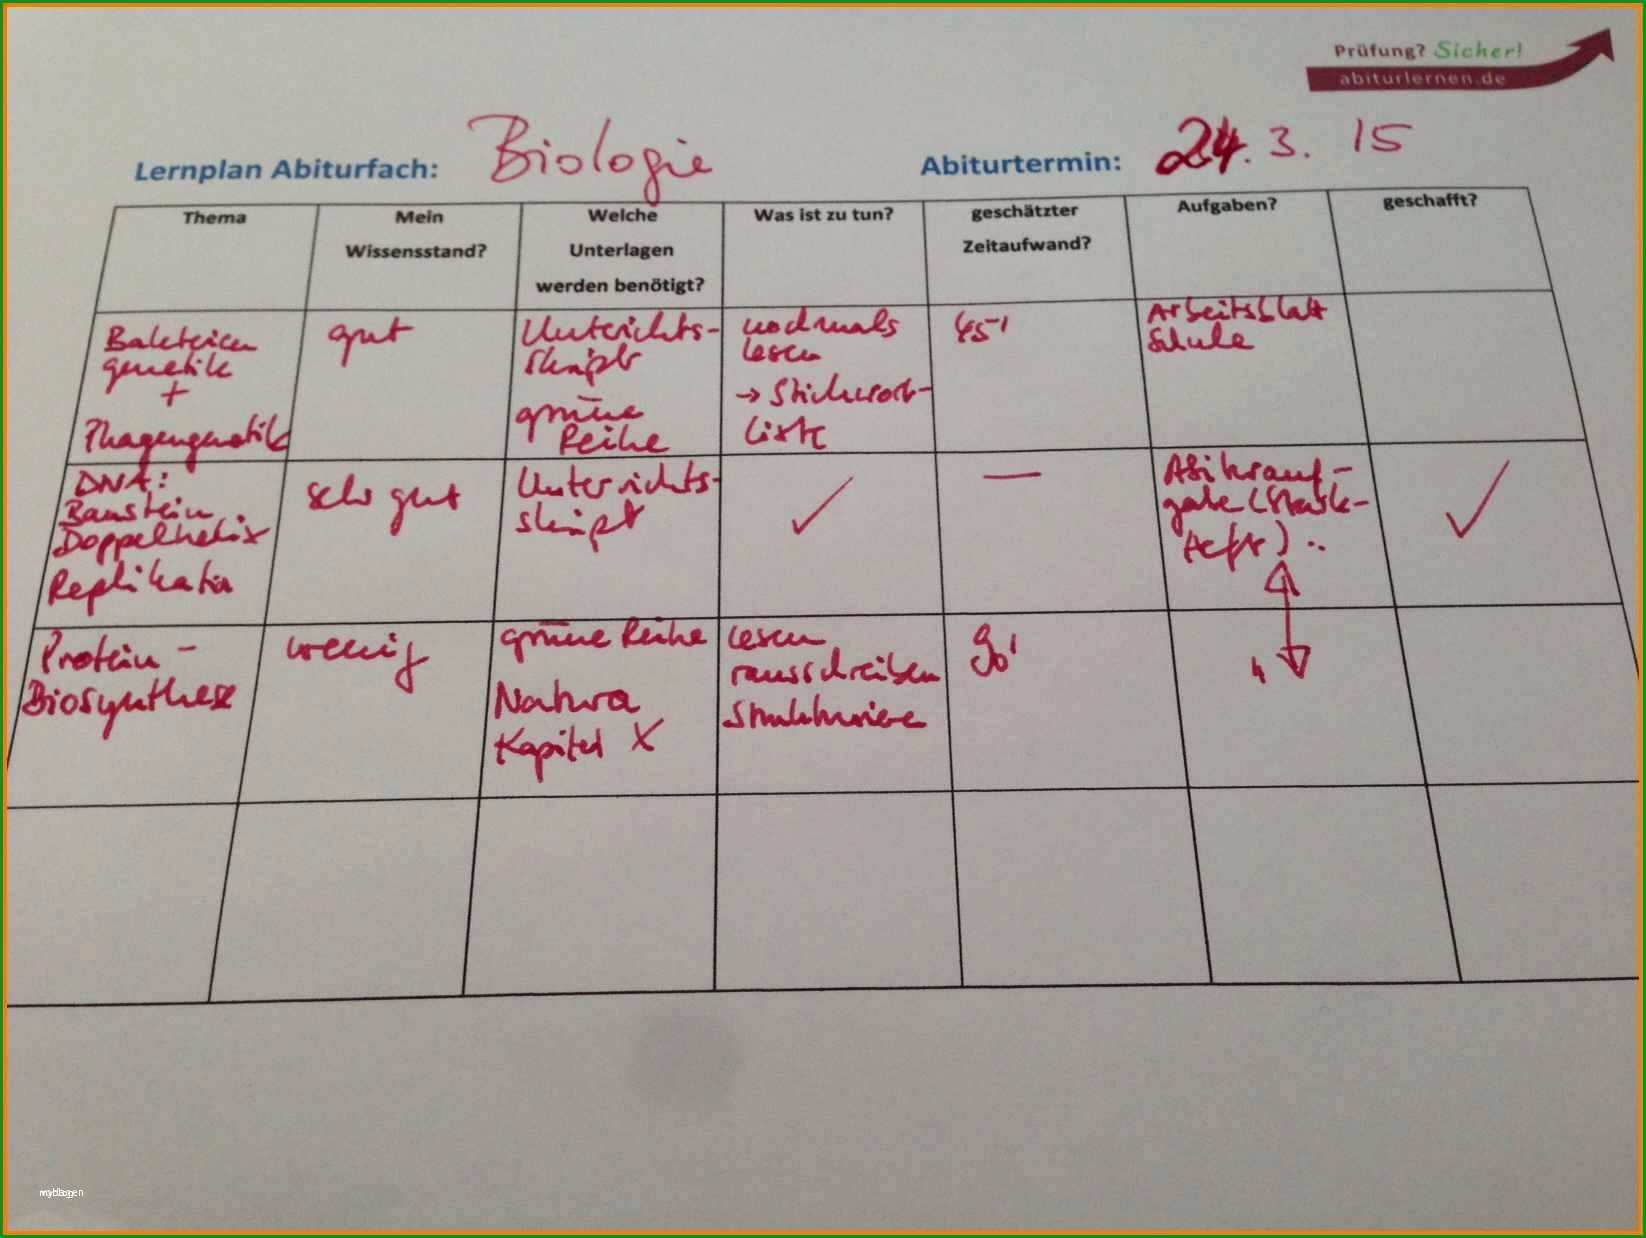 Prüfung? Sicher!
abiturlernen.de
Lernplan Abiturfach: Biologie Abiturtermin: 24.3.15
Thema
Mein
Wissensstand?
Welche
Unterlagen
werden benötigt?
Was ist zu tun?
geschätzter
Zeitaufwand?
Aufgaben?
geschafft?
Bakterien
genetik
+
Phagengenetik
gut
Unterichts-
skript
grüne
Reihe
nochmals
lesen
→ Stichwort-
liste
45'
Arbeitsblatt
Schule
DNA:
Baustein
Doppelhelix
Replikation
sehr gut
Unterrichts-
skript
✓
—
Abiturauf-
gabe (Stark-
Heft) ..
✓
Protein-
Biosynthese
wenig
grüne Reihe
Natura
Kapitel X
lesen
rausschreiben
Strukturiere
90'
"